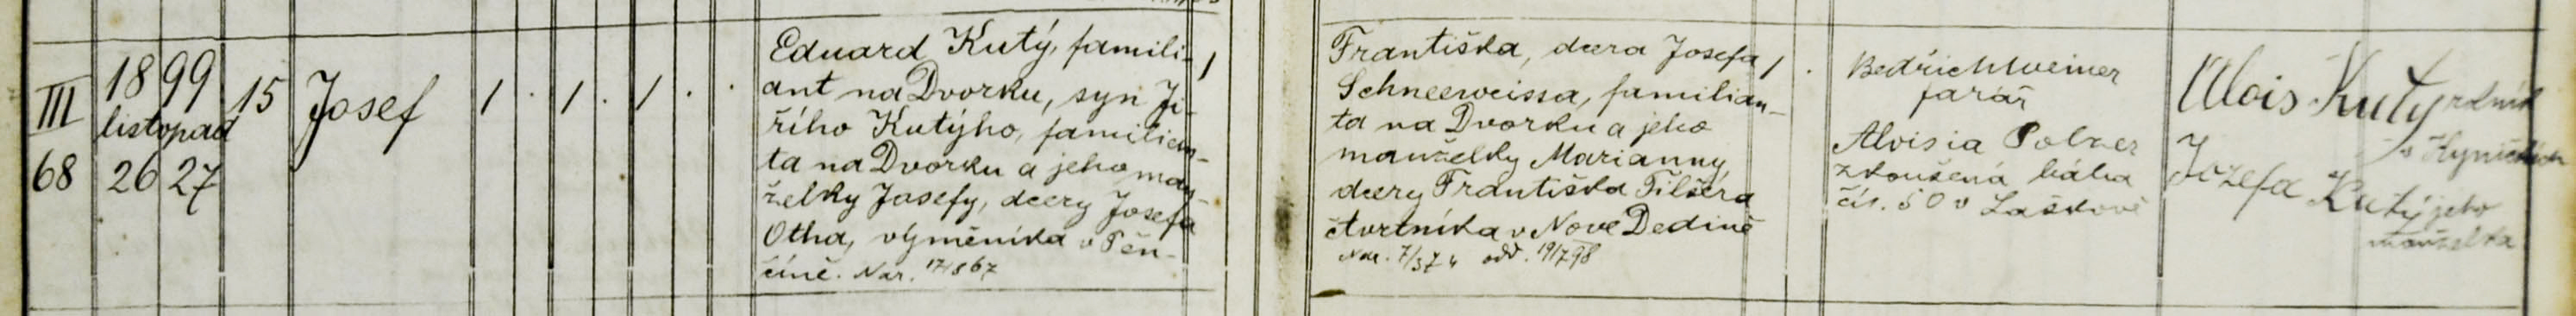 III
68
1899
listopad
26 27
15
Josef
1 . 1 . 1 . .
Eduard Kutý, famili-
ant na Dvorku, syn Ji-
řího Kutýho, familian-
ta na Dvorku a jeho man-
želky Josefy, dcery Josefa
Otha, výměníka v Pěn-
číně. Nar.
1
Františka, dcera Josefa
Schneeweissa, familian-
ta na Dvorku a jeho
manželky Marianny
dcery Františka Filšéra
čtvrtníka v Nové Dědině
Nar. odd. 19/7 98
1 .
Bedřich Weiner
farář
Aloisia Polzer
zkoušená bába
čís. 50 v Laškově
Alois Kutý rolník
v
Jozefa Kutý jeho
manželka